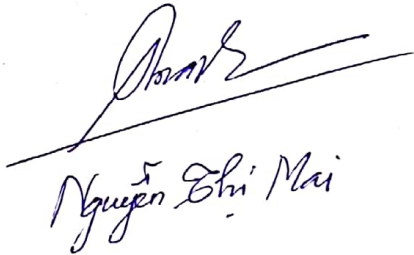 Nguyễn Thị Mai